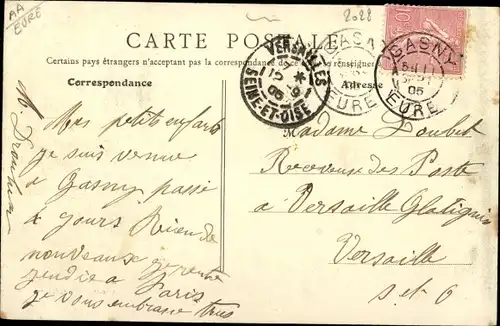 AA
EURE
2028
CARTE POSTALE
Certains pays étrangers n'acceptant pas la correspondance de ce côté, se renseigner
Correspondance
Adresse
VERSAILLES
12 -9
05
SEINE-ET-OISE
GASNY
EURE
GASNY
05
EURE
10
Mes petits enfants
je suis venue
à Gasny passé
4 jours Rien de
nouveau je rentre
jendie à Paris
je vous embrasse tous
Madame Loubet
Receveuse des Poste
à Versaille Glatigny
Versaille
S et O